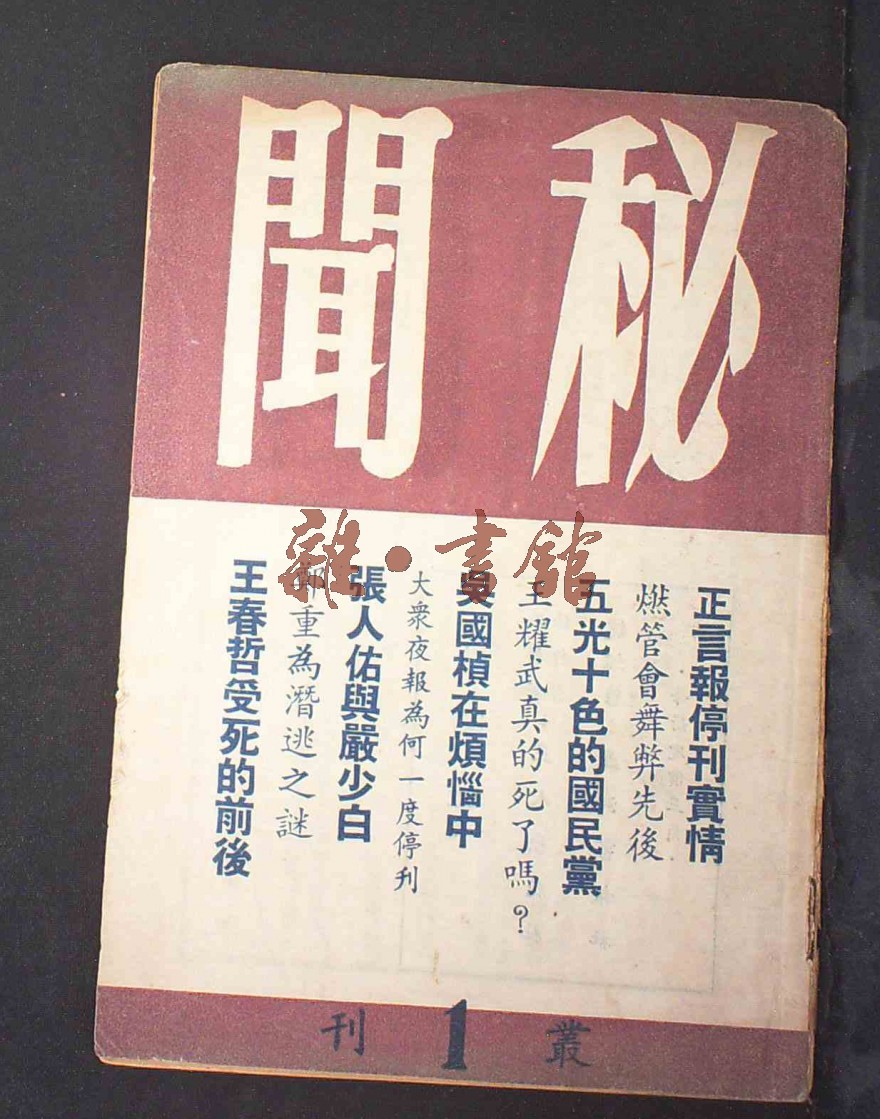 秘聞
正言報停刊實情
燃管會舞弊先後
五光十色的國民黨
王耀武真的死了嗎？
吳國楨在煩惱中
大衆夜報為何一度停刊
張人佑與嚴少白
鄭重為潛逃之謎
王春哲受死的前後
叢1刊
雜·書館